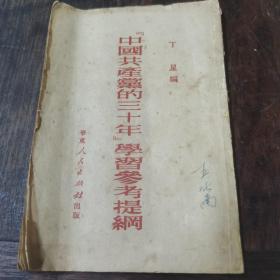 丁星編
『中國共產黨的三十年』學習參考提綱
華東人民出版社出版